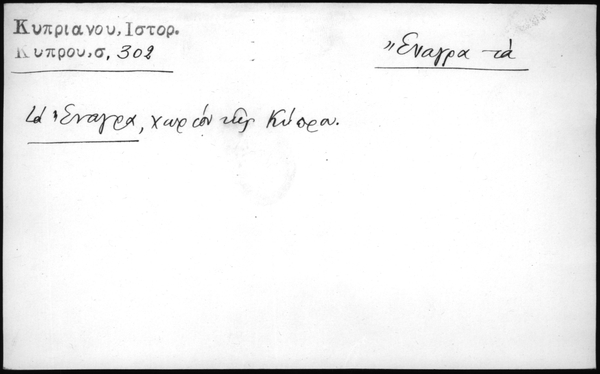 Κυπριανου, Ιστορ.
Κυπρου, σ, 302
Ἔναγρα τά
τά Ἔναγρα, χωρίον τῆς Κύπρου.